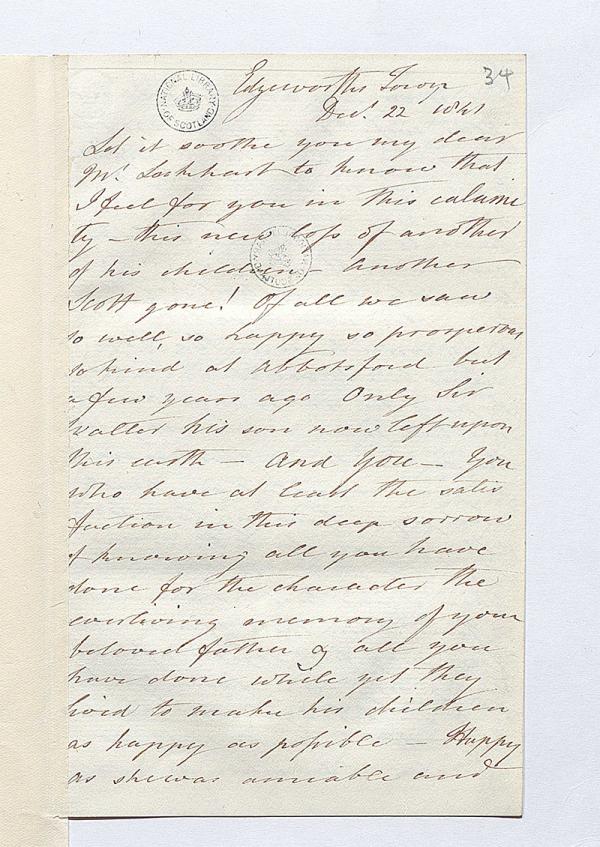 34
NATIONAL LIBRARY OF SCOTLAND
Edgeworths Town
Decr. 22 1841
Let it soothe you my dear
Mr. Lockhart to know that
I feel for you in this calami
ty – this new loss of another
of his children – another
Scott gone! Of all we saw
so well, so happy so prosperous
so kind at Abbotsford but
a few years ago Only Sir
Walter his son now left upon
this earth – And You – You
who have at least the satis
faction in this deep sorrow
of knowing all you have
done for the character the
everliving memory of your
beloved father & all you
have done while yet they
lived to make his children
as happy as possible – Happy
as she was amiable and